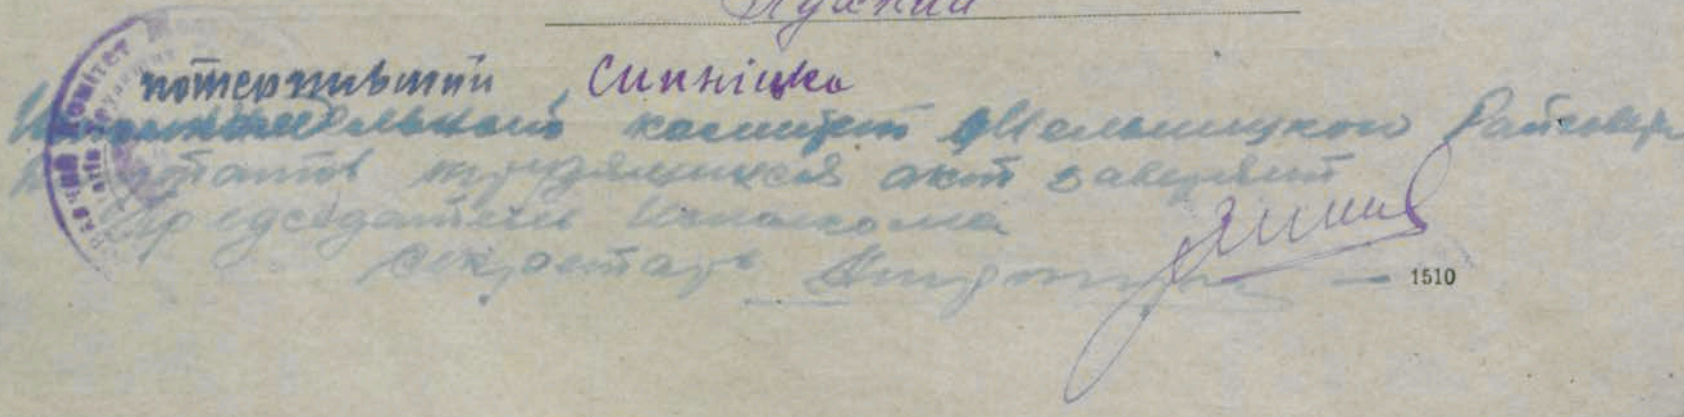 потерпивший Синніцка
Исполнительный комитет Мельницкого Райсовета
депутатов трудящихся акт заверяет
Председатель Исполкома
Секретарь
1510